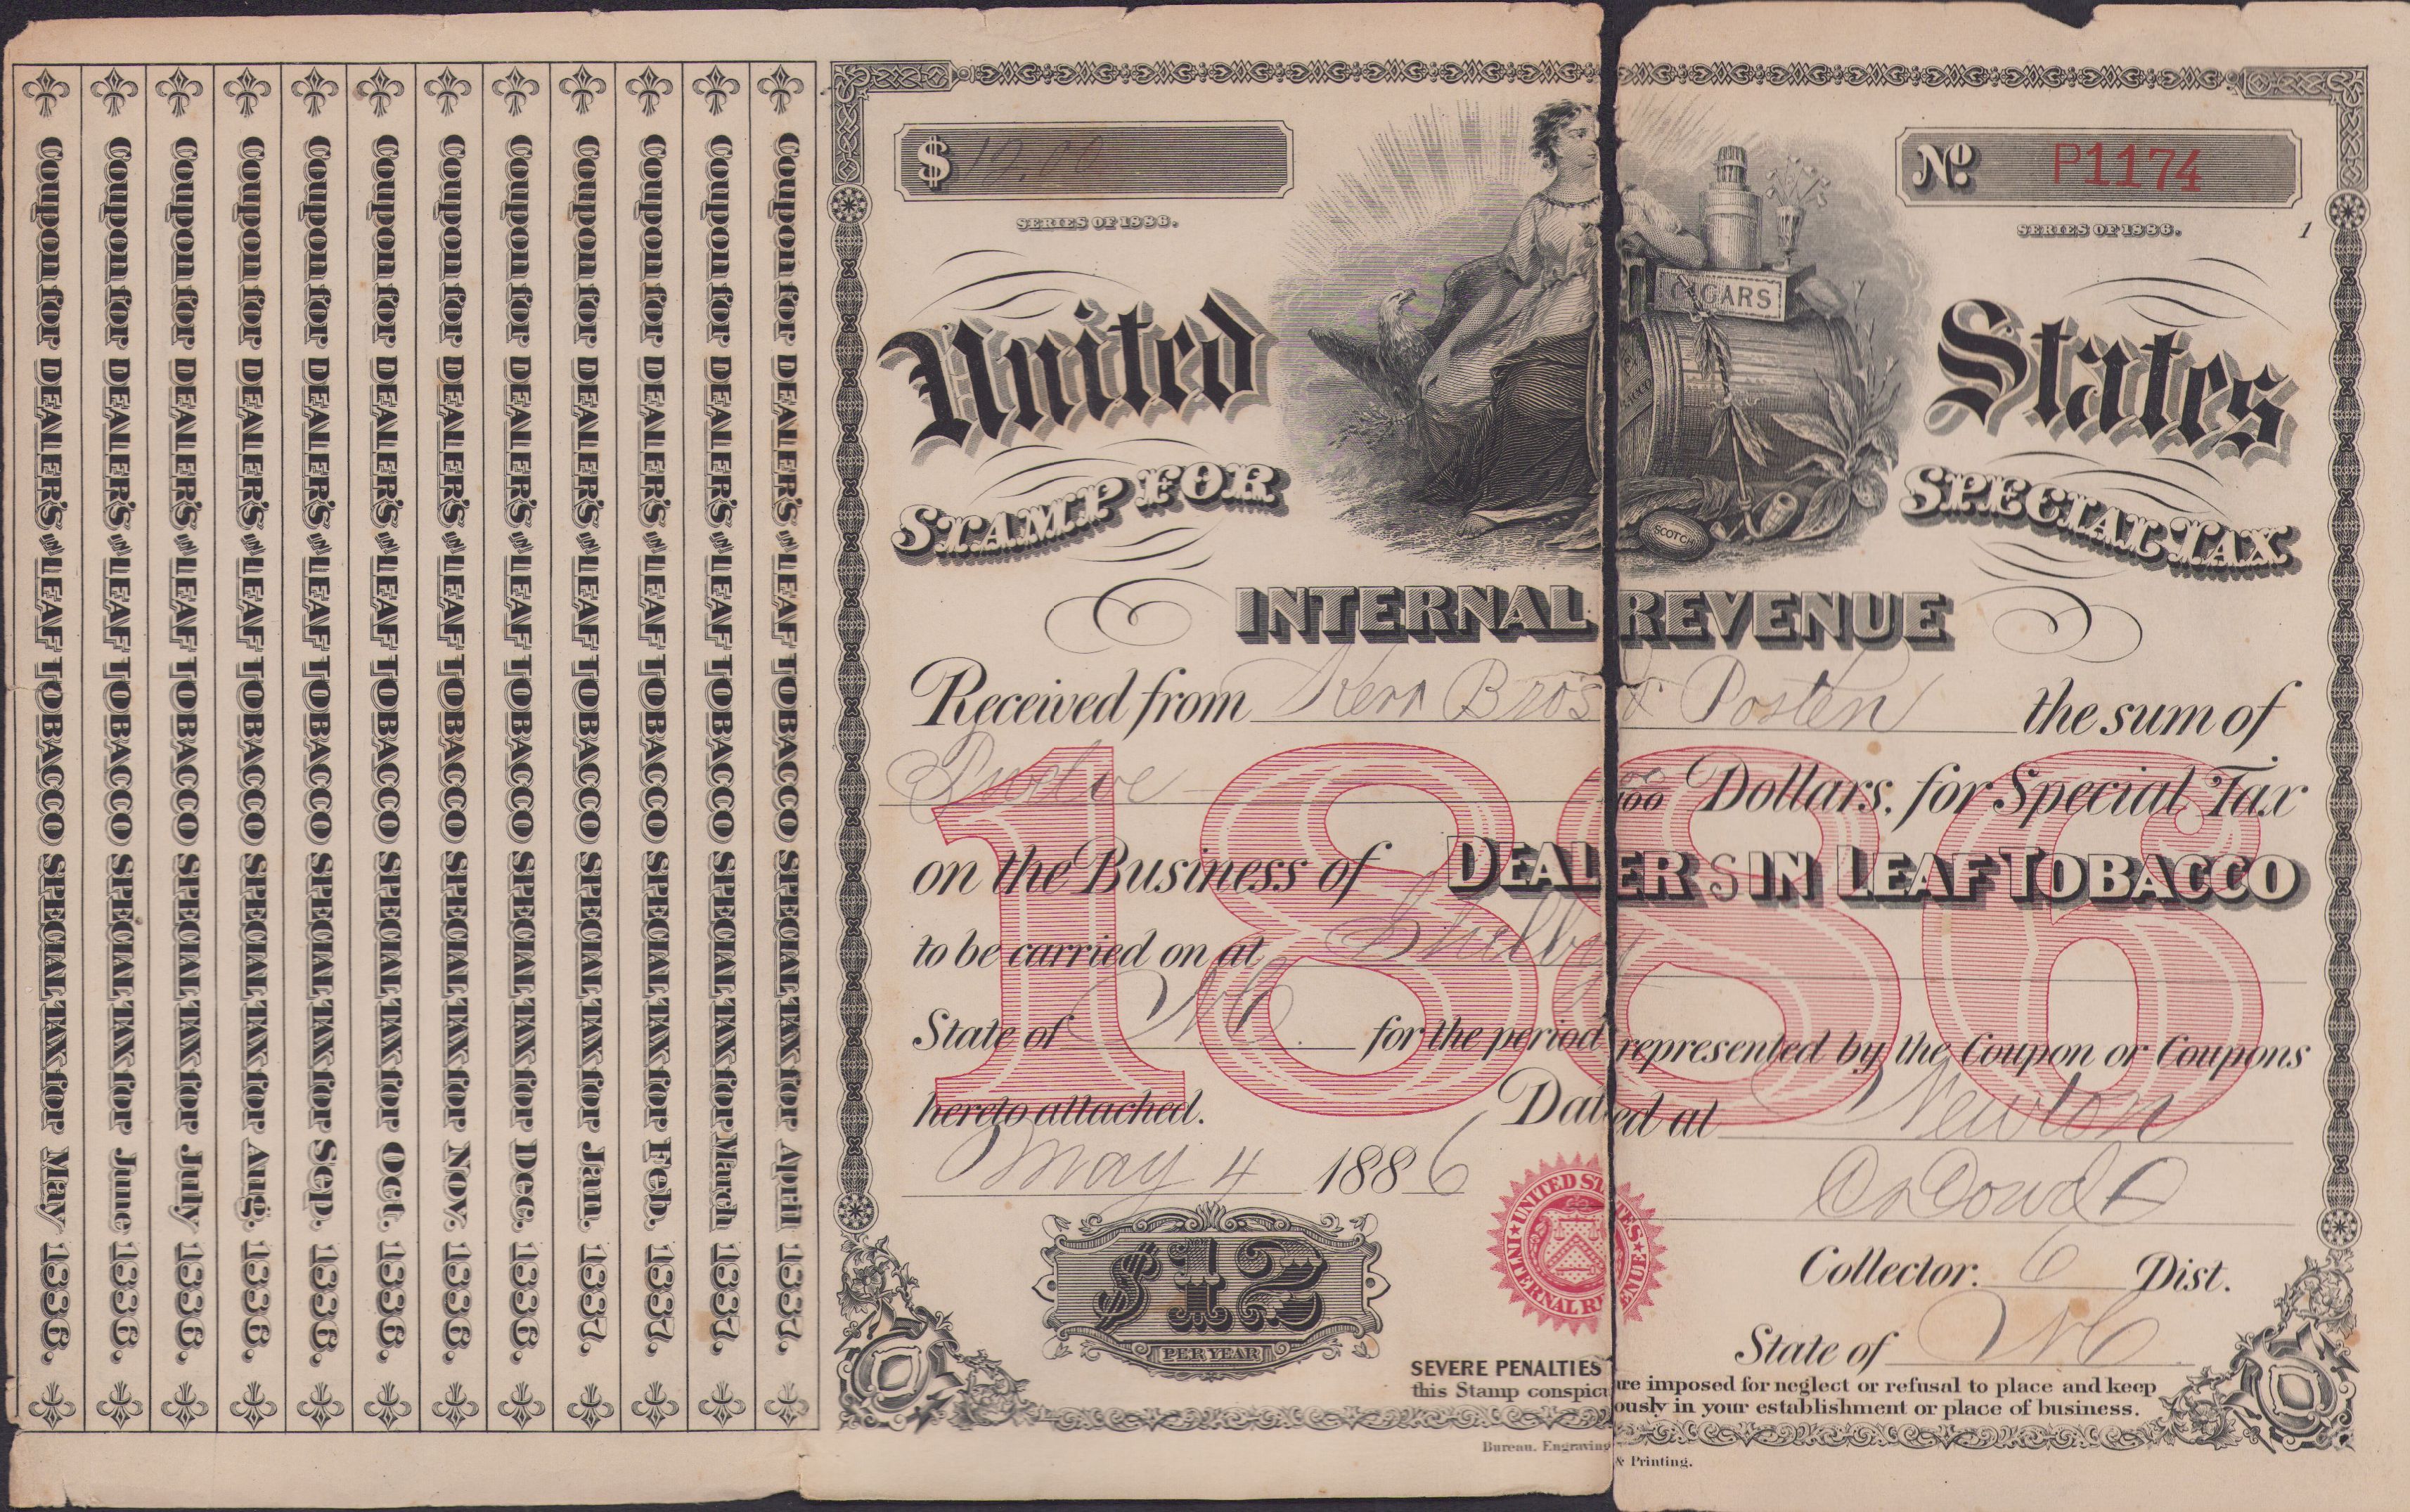 Coupon for DEALER'S IN LEAF TOBACCO SPECIAL TAX for May 1886.
Coupon for DEALER'S IN LEAF TOBACCO SPECIAL TAX for June 1886.
Coupon for DEALER'S IN LEAF TOBACCO SPECIAL TAX for July 1886.
Coupon for DEALER'S IN LEAF TOBACCO SPECIAL TAX for Aug. 1886.
Coupon for DEALER'S IN LEAF TOBACCO SPECIAL TAX for Sep. 1886.
Coupon for DEALER'S IN LEAF TOBACCO SPECIAL TAX for Oct. 1886.
Coupon for DEALER'S IN LEAF TOBACCO SPECIAL TAX for Nov. 1886.
Coupon for DEALER'S IN LEAF TOBACCO SPECIAL TAX for Dec. 1886.
Coupon for DEALER'S IN LEAF TOBACCO SPECIAL TAX for Jan. 1887.
Coupon for DEALER'S IN LEAF TOBACCO SPECIAL TAX for Feb. 1887.
Coupon for DEALER'S IN LEAF TOBACCO SPECIAL TAX for March 1887.
Coupon for DEALER'S IN LEAF TOBACCO SPECIAL TAX for April 1887.
$ 12.00
No. P1174
SERIES OF 1886.
SERIES OF 1886. 1
CIGARS
United States
STAMP FOR SPECIAL TAX
SCOTCH
INTERNAL REVENUE
Received from Kerr Bros & Posten the sum of
Twelve 00/100 Dollars, for Special Tax
1886
on the Business of DEALERS IN LEAF TOBACCO
to be carried on at Shelby
State of NC for the period represented by the Coupon or Coupons
hereto attached. Dated at Newton
May 4 1886
Dowd
Collector. 6 Dist.
State of NC
UNITED STATES INTERNAL REVENUE
$12
PER YEAR
SEVERE PENALTIES are imposed for neglect or refusal to place and keep
this Stamp conspicuously in your establishment or place of business.
Bureau. Engraving & Printing.